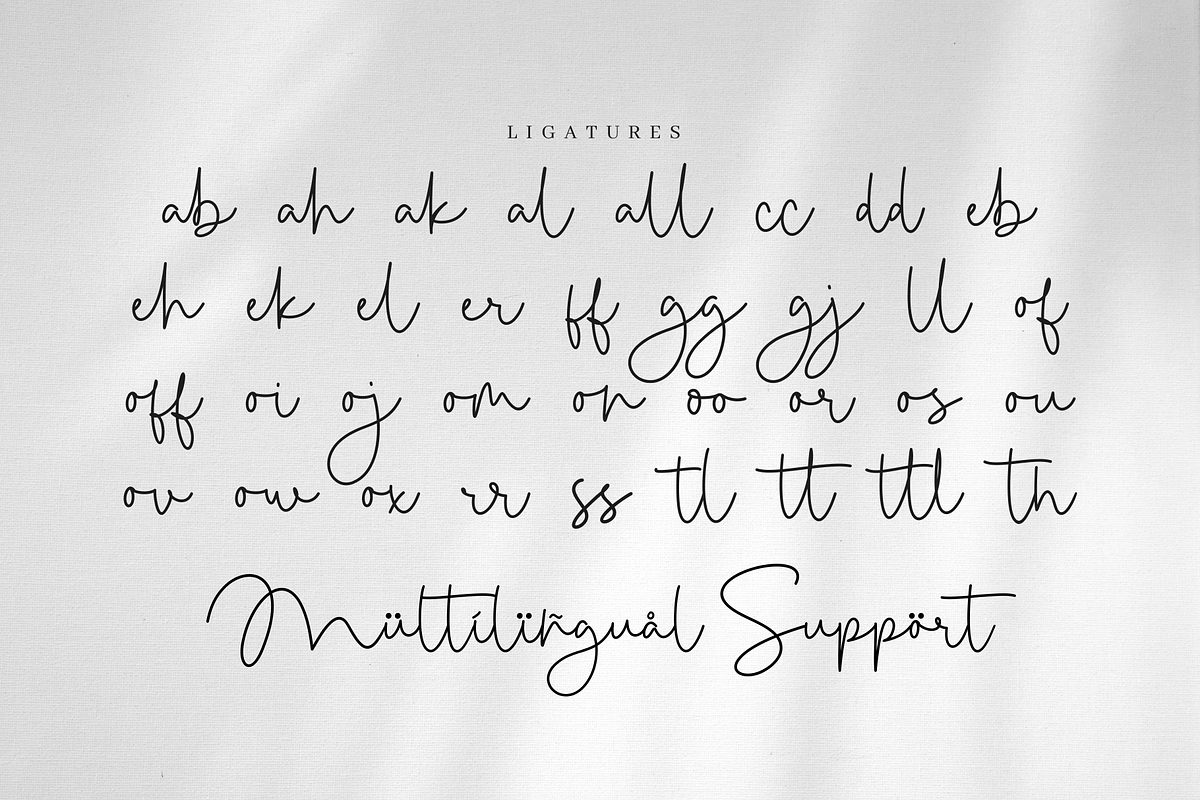 LIGATURES
ab ah ak al all cc dd eb
eh ek el er ff gg gj ll of
off oi oj om on oo or os ou
ov ow ox rr ss tl tt ttl th
Mültílïñguål Suppört